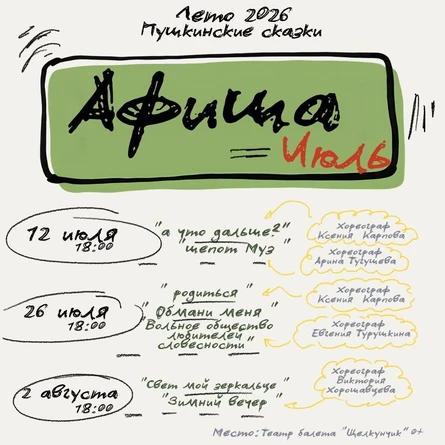 Лето 2026
Пушкинские сказки
Афиша
Июль
12 июля
18:00
"а что дальше?"
"шепот Муз"
Хореограф
Ксения Карпова
Хореограф
Арина Тугушева
26 июля
18:00
"родиться"
"Обмани меня"
"Вольное общество
любителей
словесности"
Хореограф
Ксения Карпова
Хореограф
Евгения Турушкина
2 августа
18:00
"Свет мой зеркальце"
"Зимний вечер"
Хореограф
Виктория
Хорошавцева
Место: Театр балета "Щелкунчик" 0+